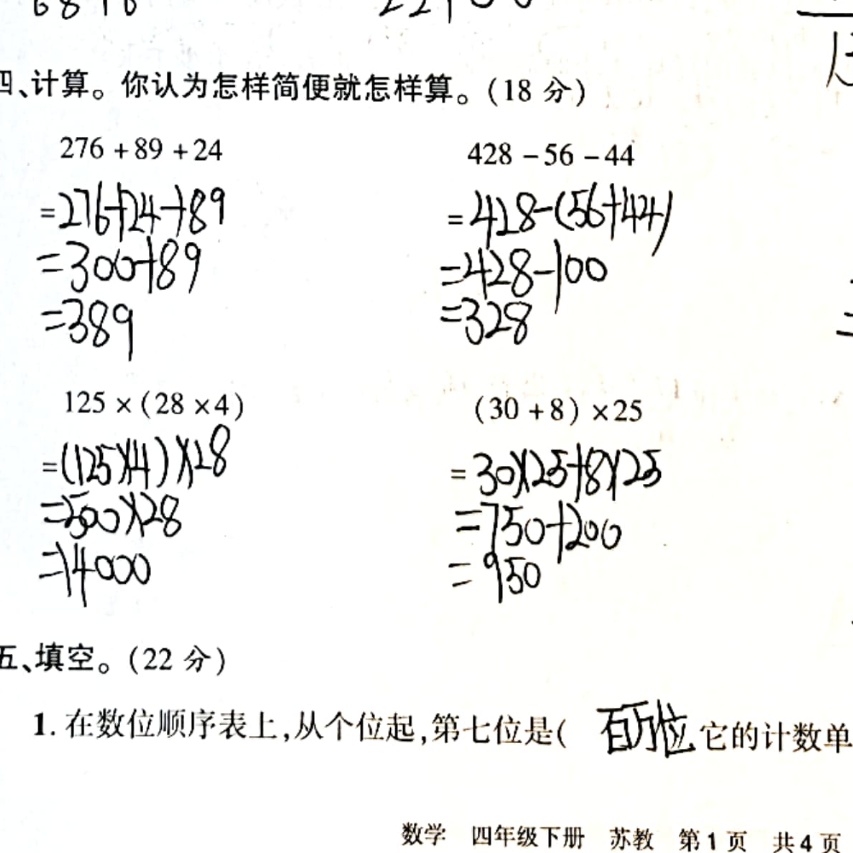 四、计算。你认为怎样简便就怎样算。(18 分)
276 + 89 + 24
=276+24+89
=300+89
=389
428 - 56 - 44
=428-(56+44)
=428-100
=328
125 × (28 × 4)
=(125×4)×28
=500×28
=14000
(30 + 8) × 25
=30×25+8×25
=750+200
=950
五、填空。(22 分)
1. 在数位顺序表上,从个位起,第七位是( 百万位 它的计数单
数学 四年级下册 苏教 第1页 共4页